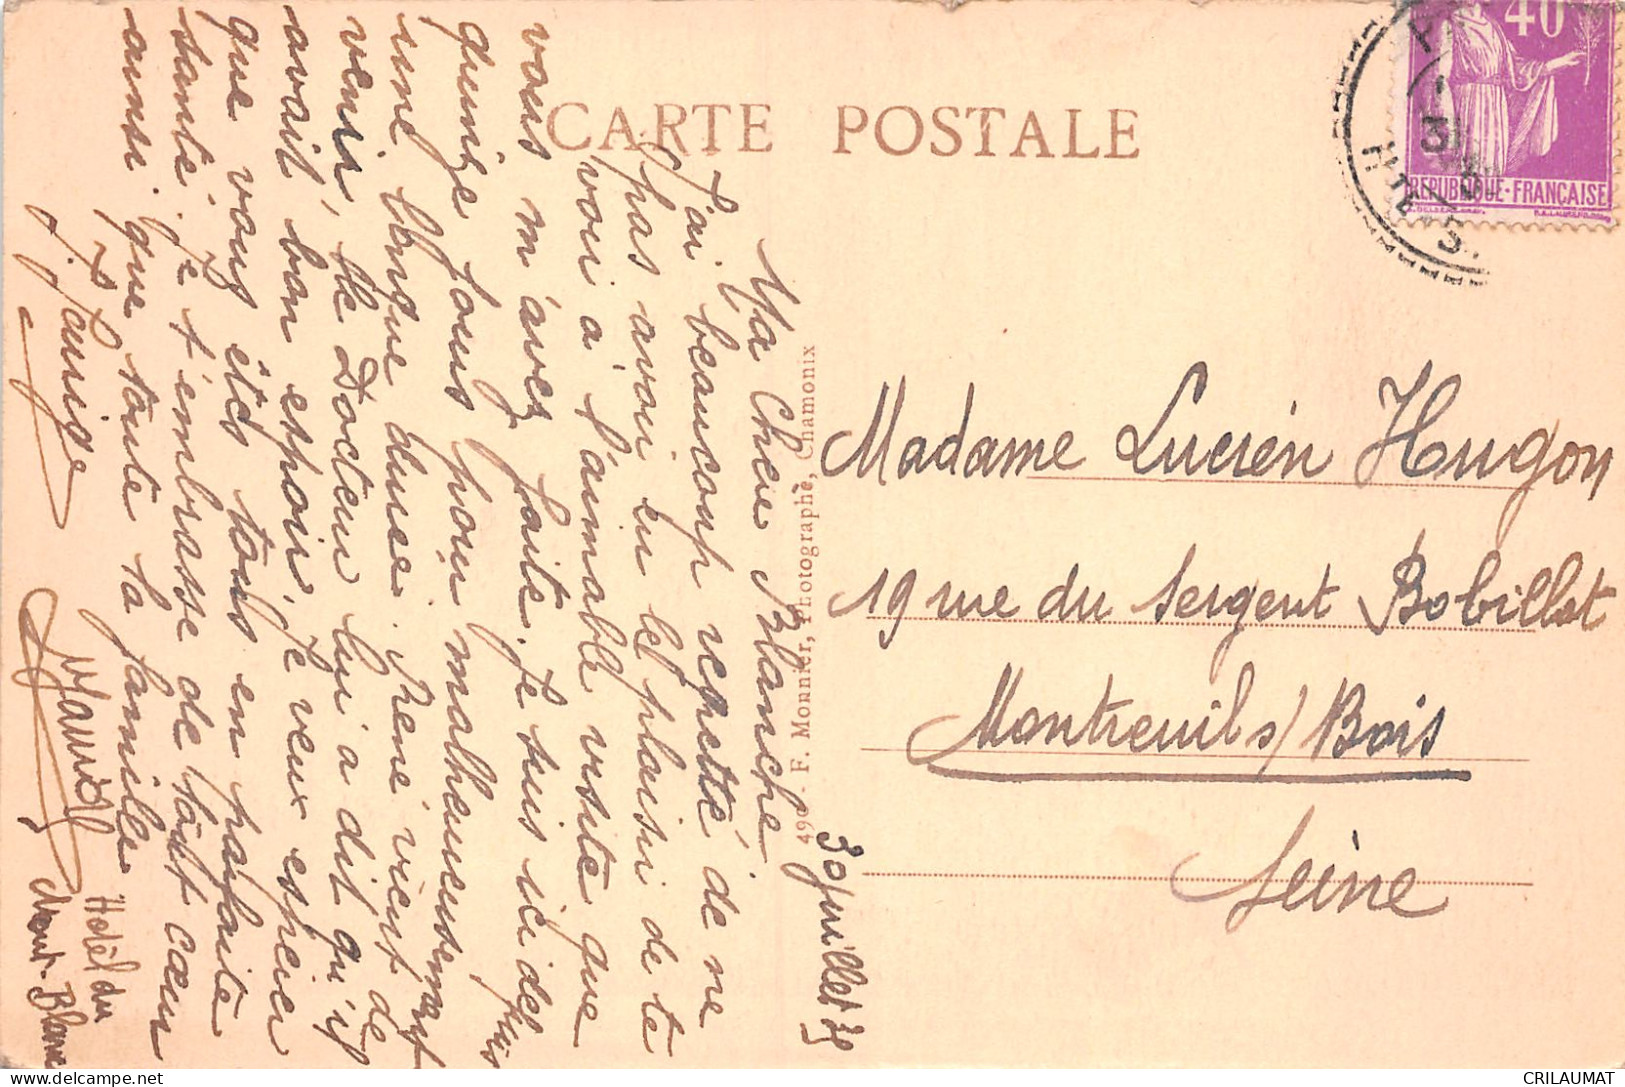 CARTE POSTALE
40
REPUBLIQUE-FRANÇAISE
Hte-S
30 Juillet 35
Ma Chère Blanche
J'ai beaucoup regretté de ne
pas avoir eu le plaisir de te
voir à l'aimable visite que
vous m'avez faite. Je suis ici depuis
quinze jours pour malheureusement
une longue durée. René vient de
venir, le Docteur lui a dit qu'il y
avait bon espoir. Je veux espérer
que vous êtes tous en parfaite
santé. Je t'embrasse de tout cœur
ainsi que toute la famille
Hôtel du
Mont-Blanc
490 - F. Monnier, Photographe, Chamonix
Madame Lucien Hugon
19 rue du Sergent Bobillot
Montreuil s/Bois
Seine
CRILAUMAT